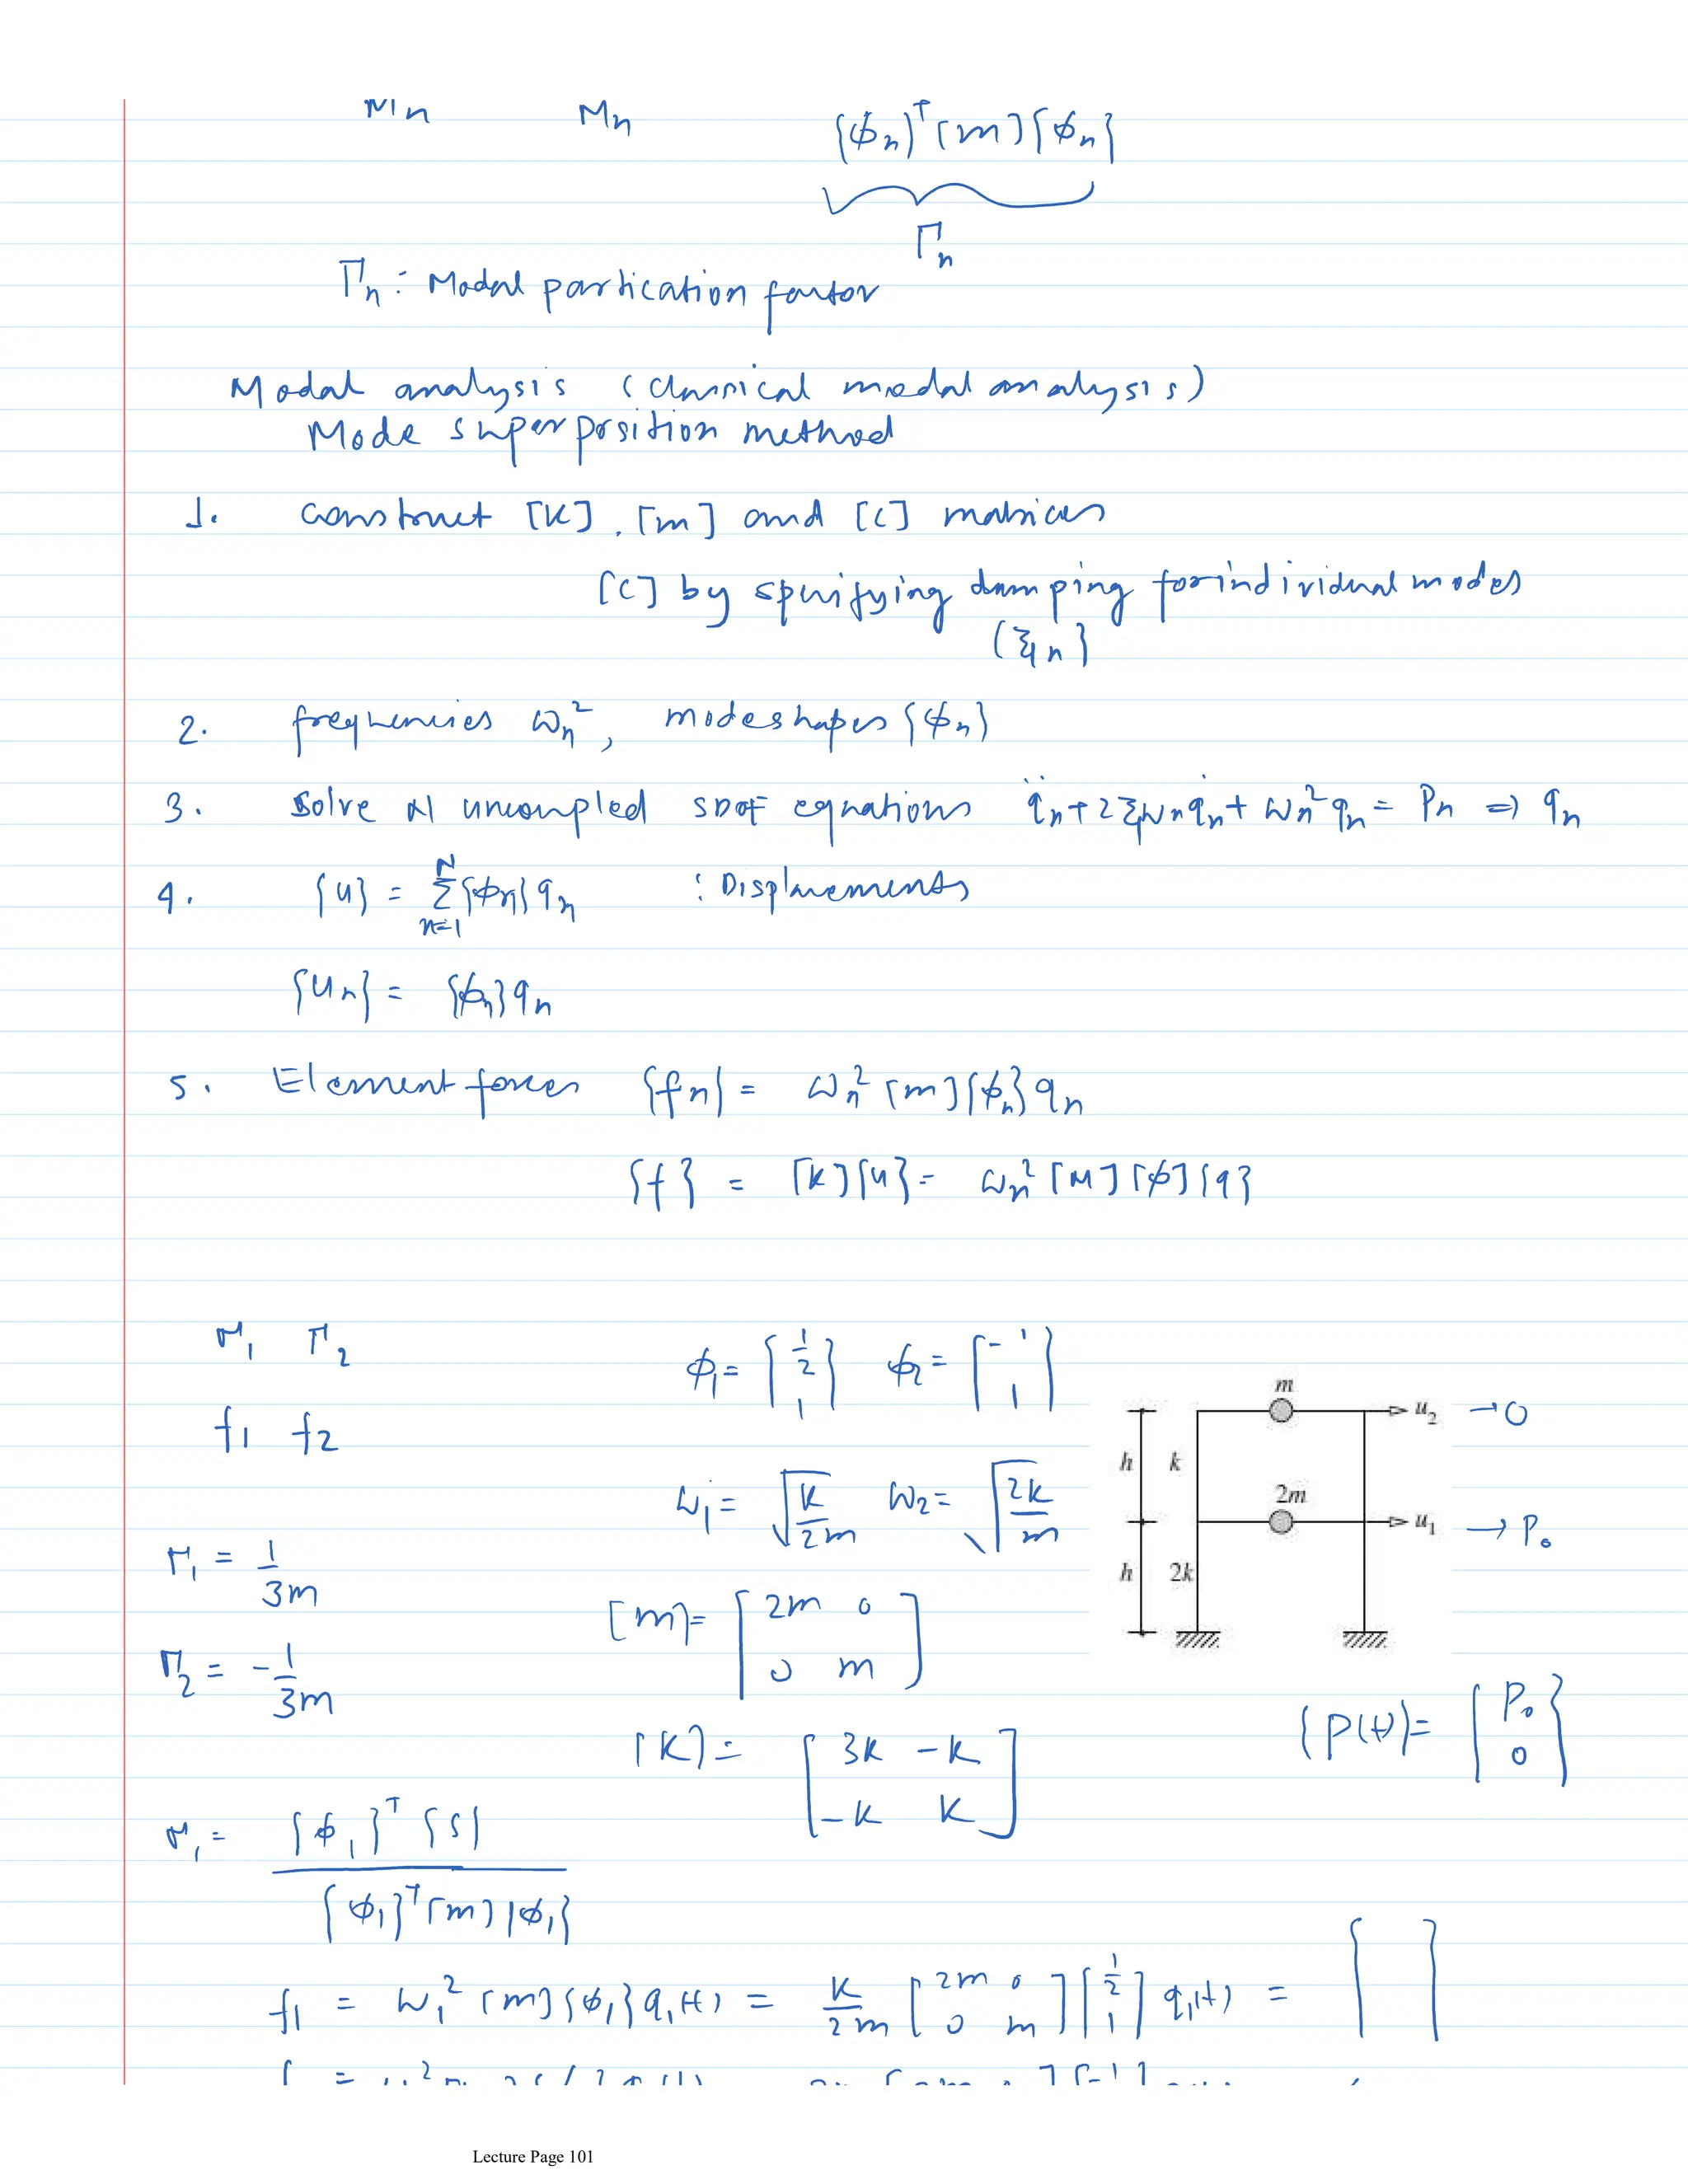 Mn Mn {ϕn}ᵀ[m]{ϕn}
Γn
Γn : Modal partication factor
Modal analysis (classical modal analysis)
Mode superposition method
1. construct [K], [m] and [C] matrices
[C] by specifying damping for individual modes
(ξn}
2. frequencies ωn², modeshapes {ϕn}
3. Solve N uncoupled SDOF equations q̈n + 2ξωnq̇n + ωn²qn = Pn ⇒ qn
4. {u} = Σ_{n=1}^{N} {ϕn}qn : Displacements
{un} = {ϕn}qn
5. Element forces {fn} = ωn²[m]{ϕn}qn
{f} = [k]{u} = ωn²[M][ϕ]{q}
Γ1 Γ2 ϕ1 = {1/2 1} ϕ2 = {-1 1}
f1 f2
m
u2 → 0
h k
ω1 = √(k/2m) ω2 = √(2k/m)
2m
u1 → P0
h 2k
Γ1 = 1/3m
[m] = [2m 0
0 m]
Γ2 = -1/3m
{P(t)} = {P0
0}
[K] = [3k -k
-k k]
Γ1 = {ϕ1}ᵀ{s} / {ϕ1}ᵀ[m]{ϕ1}
f1 = ω1²[m]{ϕ1}q1(t) = k/2m [2m 0 0 m]{1/2 1} q1(t) = { }
Lecture Page 101